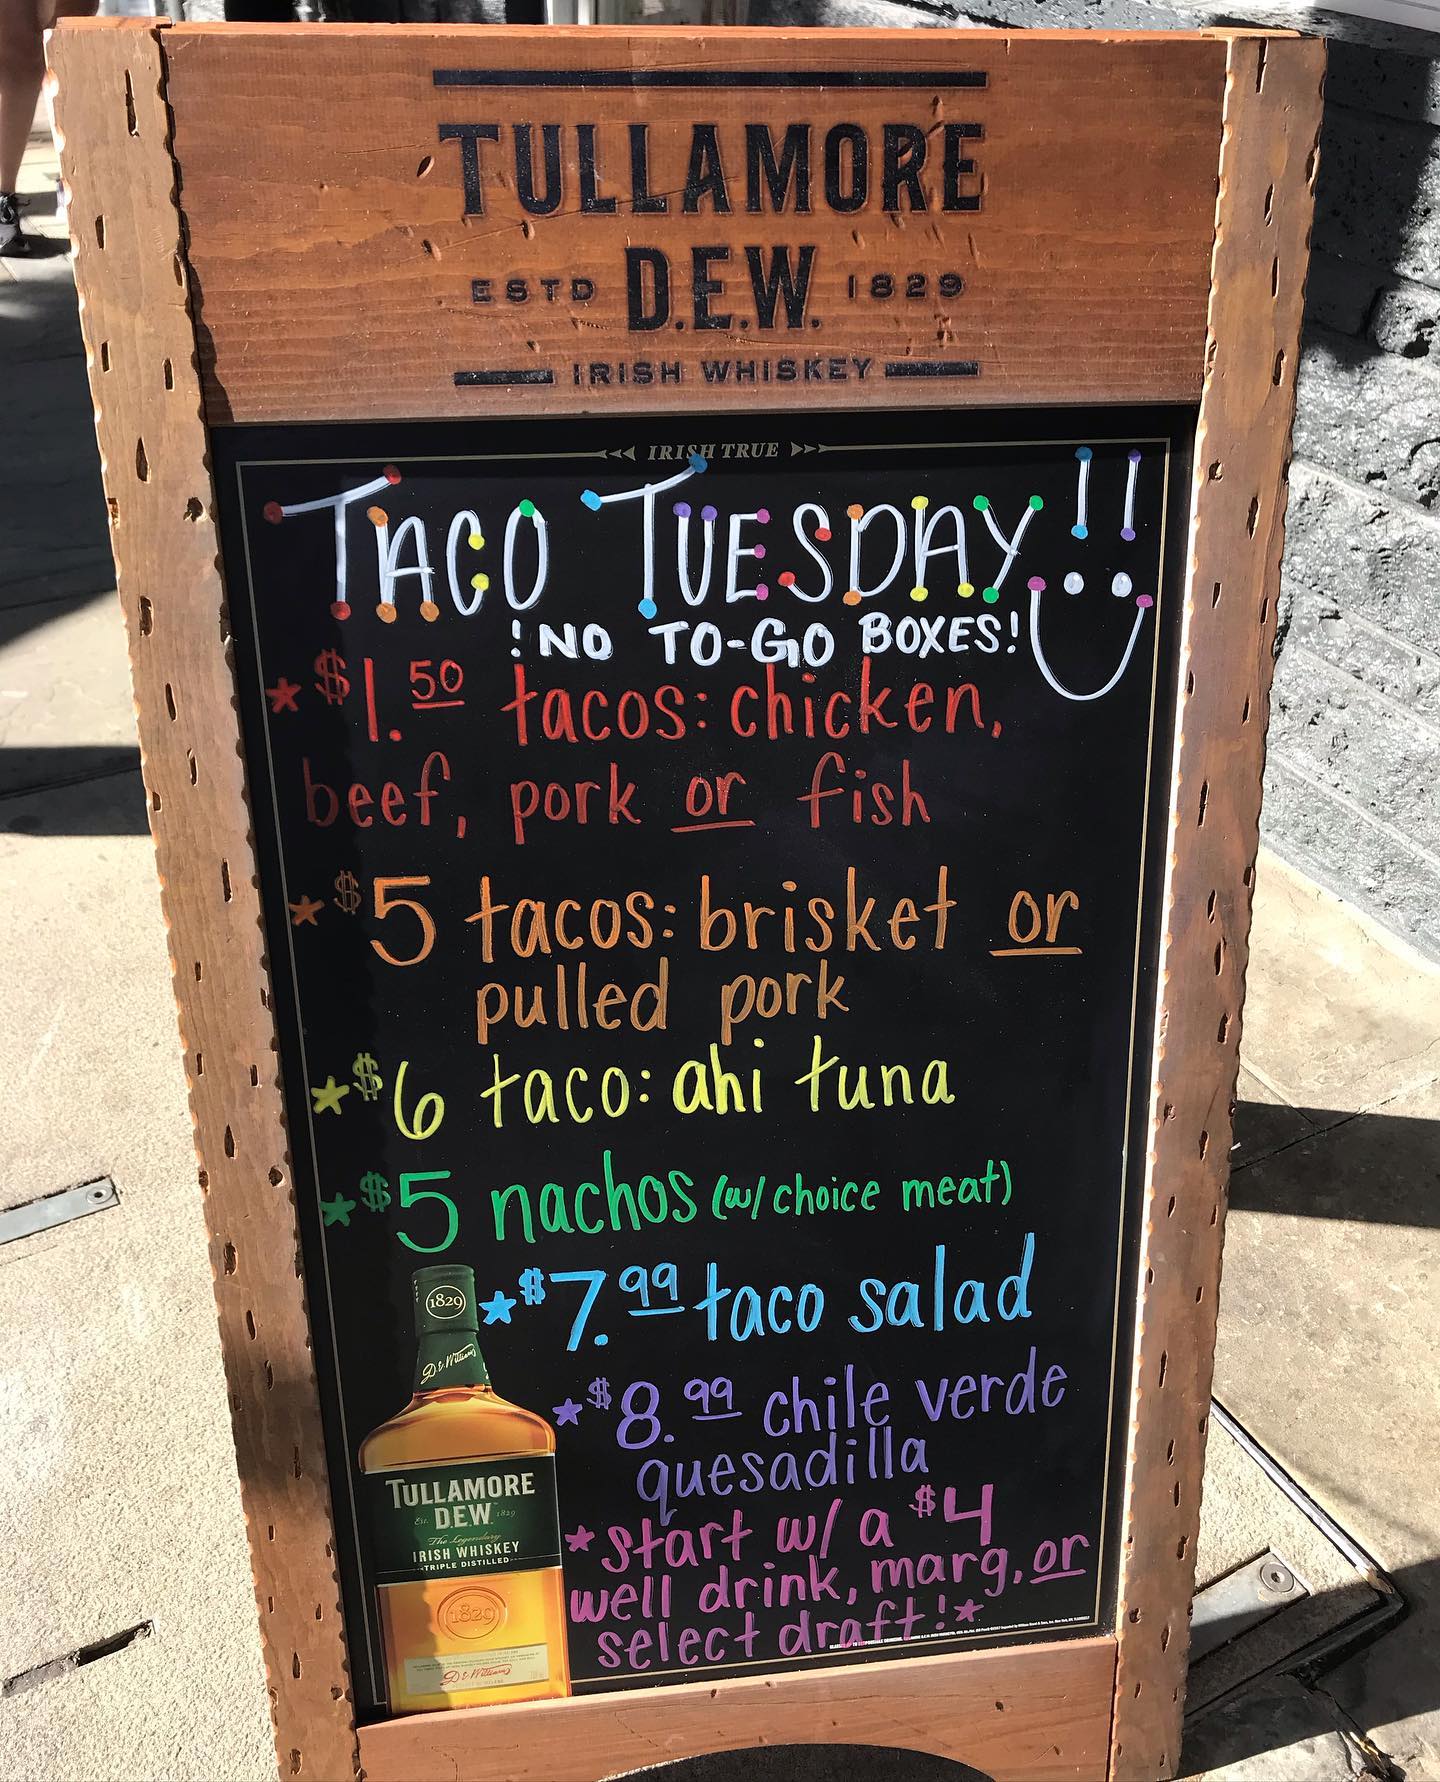 TULLAMORE
ESTD D.E.W. 1829
IRISH WHISKEY
IRISH TRUE
TACO TUESDAY!!
!NO TO-GO BOXES!
*$1.50 tacos: chicken,
beef, pork or fish
*$5 tacos: brisket or
pulled pork
*$6 taco: ahi tuna
*$5 nachos (w/ choice meat)
*$7.99 taco salad
*$8.99 chile verde
quesadilla
*start w/ a $4
well drink, marg, or
select draft!*
1829
D.E. Williams
TULLAMORE
Est. D.E.W.™ 1829
The Legendary
IRISH WHISKEY
TRIPLE DISTILLED
1829
D.E. Williams